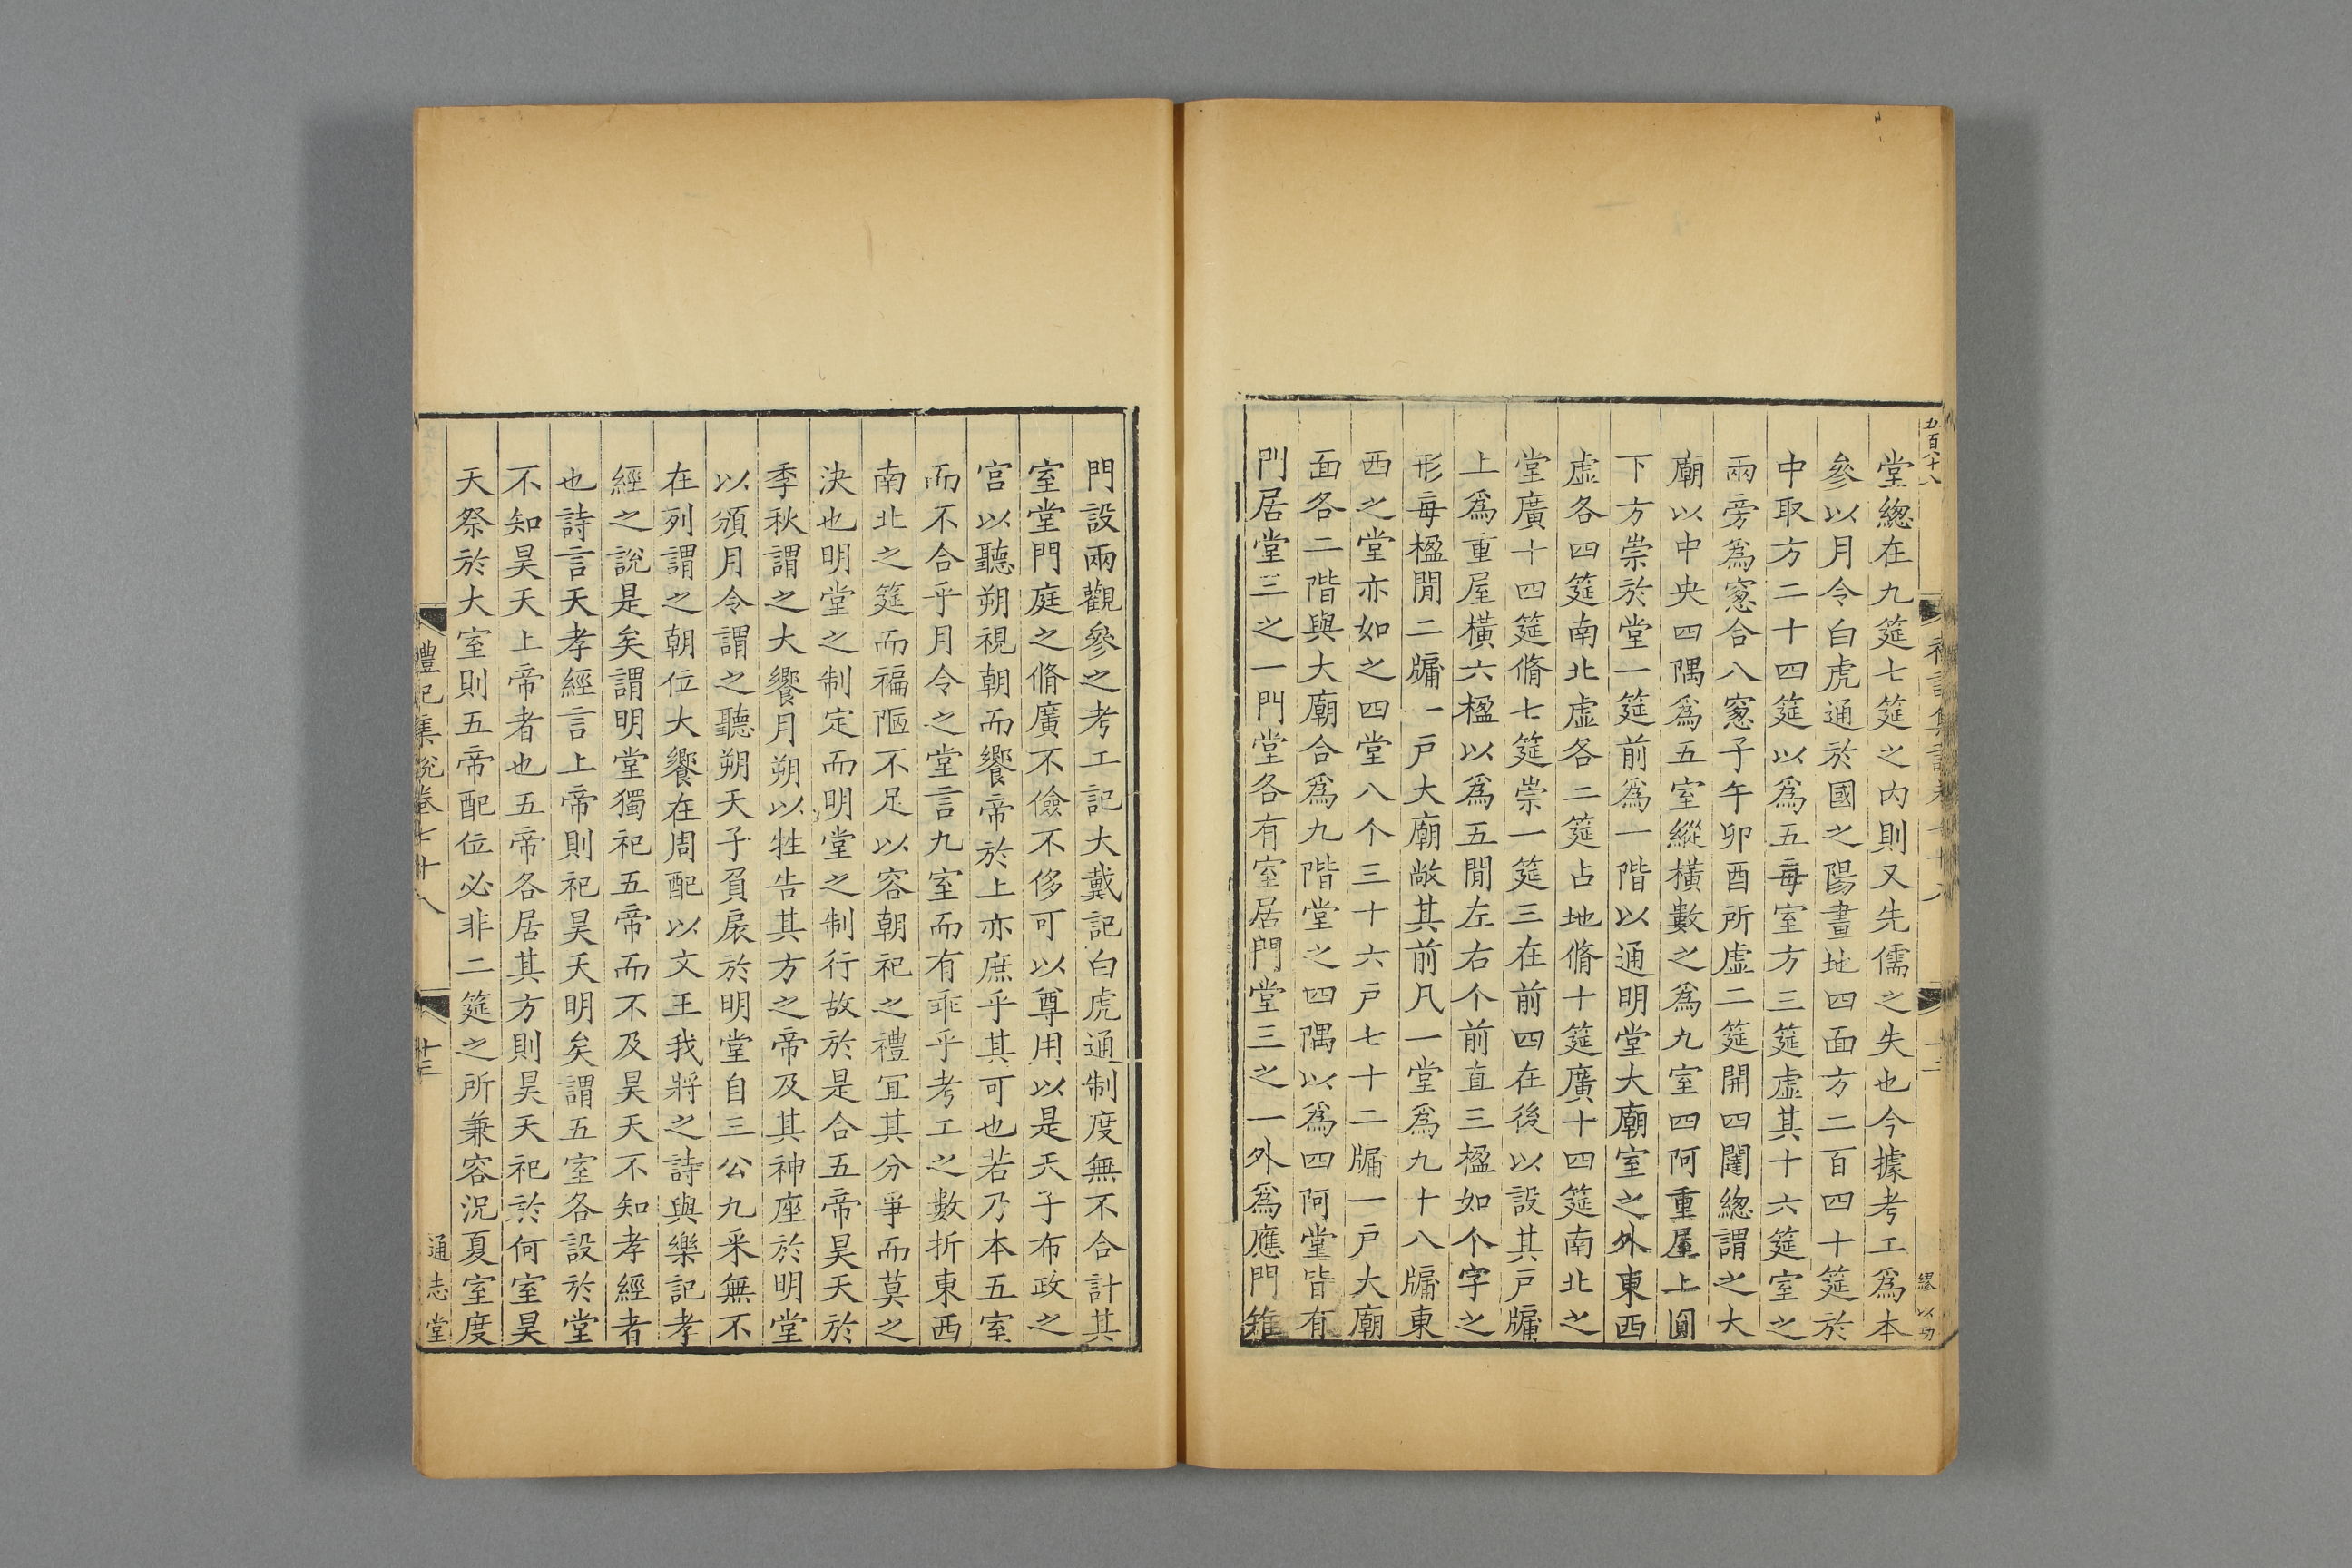 五百八十八
堂總在九筵七筵之内則又先儒之失也今據考工爲本
參以月令白虎通於國之陽畫地四面方二百四十筵於
中取方二十四筵以爲五每室方三筵虛其十六筵室之
兩旁爲窻合八窻子午卯酉所虛二筵開四闥總謂之大
廟以中央四隅爲五室縱橫數之爲九室四阿重屋上圓
下方崇於堂一筵前爲一階以通明堂大廟室之外東西
虛各四筵南北虛各二筵占地脩十筵廣十四筵南北之
堂廣十四筵脩七筵崇一筵三在前四在後以設其戸牖
上爲重屋橫六楹以爲五閒左右个前直三楹如个字之
形每楹閒二牖一戸大廟敞其前凡一堂爲九十八牖東
西之堂亦如之四堂八个三十六戸七十二牖一戸大廟
面各二階與大廟合爲九階堂之四隅以爲四阿堂皆有
門居堂三之一門堂各有室居門堂三之一外爲應門雉
門設兩觀參之考工記大戴記白虎通制度無不合計其
室堂門庭之脩廣不儉不侈可以尊用以是天子布政之
宫以聽朔視朝而饗帝於上亦庶乎其可也若乃本五室
而不合乎月令之堂言九室而有乖乎考工之數折東西
南北之筵而褊陋不足以容朝祀之禮冝其分爭而莫之
決也明堂之制定而明堂之制行故於是合五帝昊天於
季秋謂之大饗月朔以牲告其方之帝及其神座於明堂
以頒月令謂之聽朔天子負扆於明堂自三公九釆無不
在列謂之朝位大饗在周配以文王我將之詩與樂記孝
經之説是矣謂明堂獨祀五帝而不及昊天不知孝經者
也詩言天孝經言上帝則祀昊天明矣謂五室各設於堂
不知昊天上帝者也五帝各居其方則昊天祀於何室昊
天祭於大室則五帝配位必非二筵之所兼容況夏室度
禮記集説卷七十八
十三
通志堂